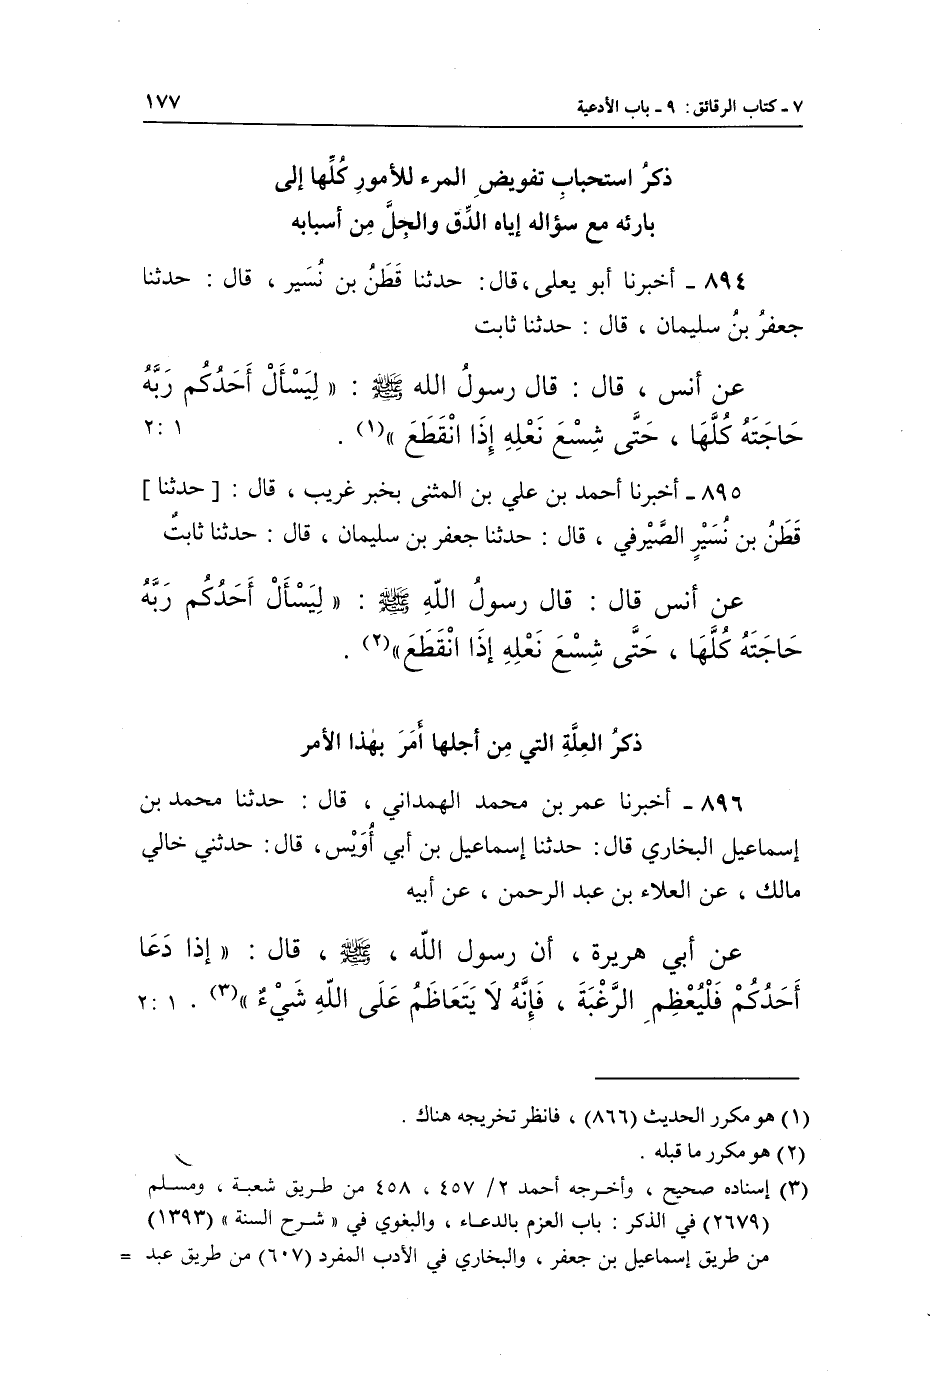 ٧ ـ كتاب الرقائق: ٩ ـ باب الأدعية ١٧٧
ذكرُ استحبابِ تفويضِ المرء للأمورِ كُلِّها إلى
بارئه مع سؤاله إياه الدِّق والجِلَّ مِن أسبابه
٨٩٤ ـ أخبرنا أبو يعلى، قال: حدثنا قَطَنُ بن نُسَير ، قال : حدثنا
جعفرُ بنُ سليمان ، قال : حدثنا ثابت
عن أنس ، قال : قال رسولُ الله ﷺ : « لِيَسْأَلْ أَحَدُكُم رَبَّهُ
حَاجَتَهُ كُلَّهَا ، حَتَّى شِسْعَ نَعْلِهِ إِذَا انْقَطَعَ »(١) . ١ :٢
٨٩٥ ـ أخبرنا أحمد بن علي بن المثنى بخبر غريب ، قال : [ حدثنا ]
قَطَنُ بن نُسَيْرٍ الصَّيْرفي ، قال : حدثنا جعفر بن سليمان ، قال : حدثنا ثابتٌ
عن أنس قال : قال رسولُ اللّهِ ﷺ : « لِيَسْأَلْ أَحَدُكُم رَبَّهُ
حَاجَتَهُ كُلَّهَا ، حَتَّى شِسْعَ نَعْلِهِ إِذَا انْقَطَعَ»(٢) .
ذكرُ العِلَّةِ التي مِن أجلها أَمَرَ بهٰذا الأمر
٨٩٦ ـ أخبرنا عمر بن محمد الهمداني ، قال : حدثنا محمد بن
إسماعيل البخاري قال: حدثنا إسماعيل بن أبي أُوَيْس، قال: حدثني خالي
مالك ، عن العلاء بن عبد الرحمن ، عن أبيه
عن أبي هريرة ، أن رسول اللّه ، ﷺ ، قال : « إذا دَعَا
أَحَدُكُمْ فَلْيُعْظِمِ الرَّغْبَةَ ، فَإِنَّهُ لَا يَتَعَاظَمُ عَلَى اللّهِ شَيْءٌ »(٣) . ١ :٢
(١) هو مكرر الحديث (٨٦٦) ، فانظر تخريجه هناك .
(٢) هو مكرر ما قبله .
(٣) إسناده صحيح ، وأخرجه أحمد ٢/ ٤٥٧ ، ٤٥٨ من طريق شعبة ، ومسلم
(٢٦٧٩) في الذكر : باب العزم بالدعاء ، والبغوي في « شرح السنة » (١٣٩٣)
من طريق إسماعيل بن جعفر ، والبخاري في الأدب المفرد (٦٠٧) من طريق عبد =